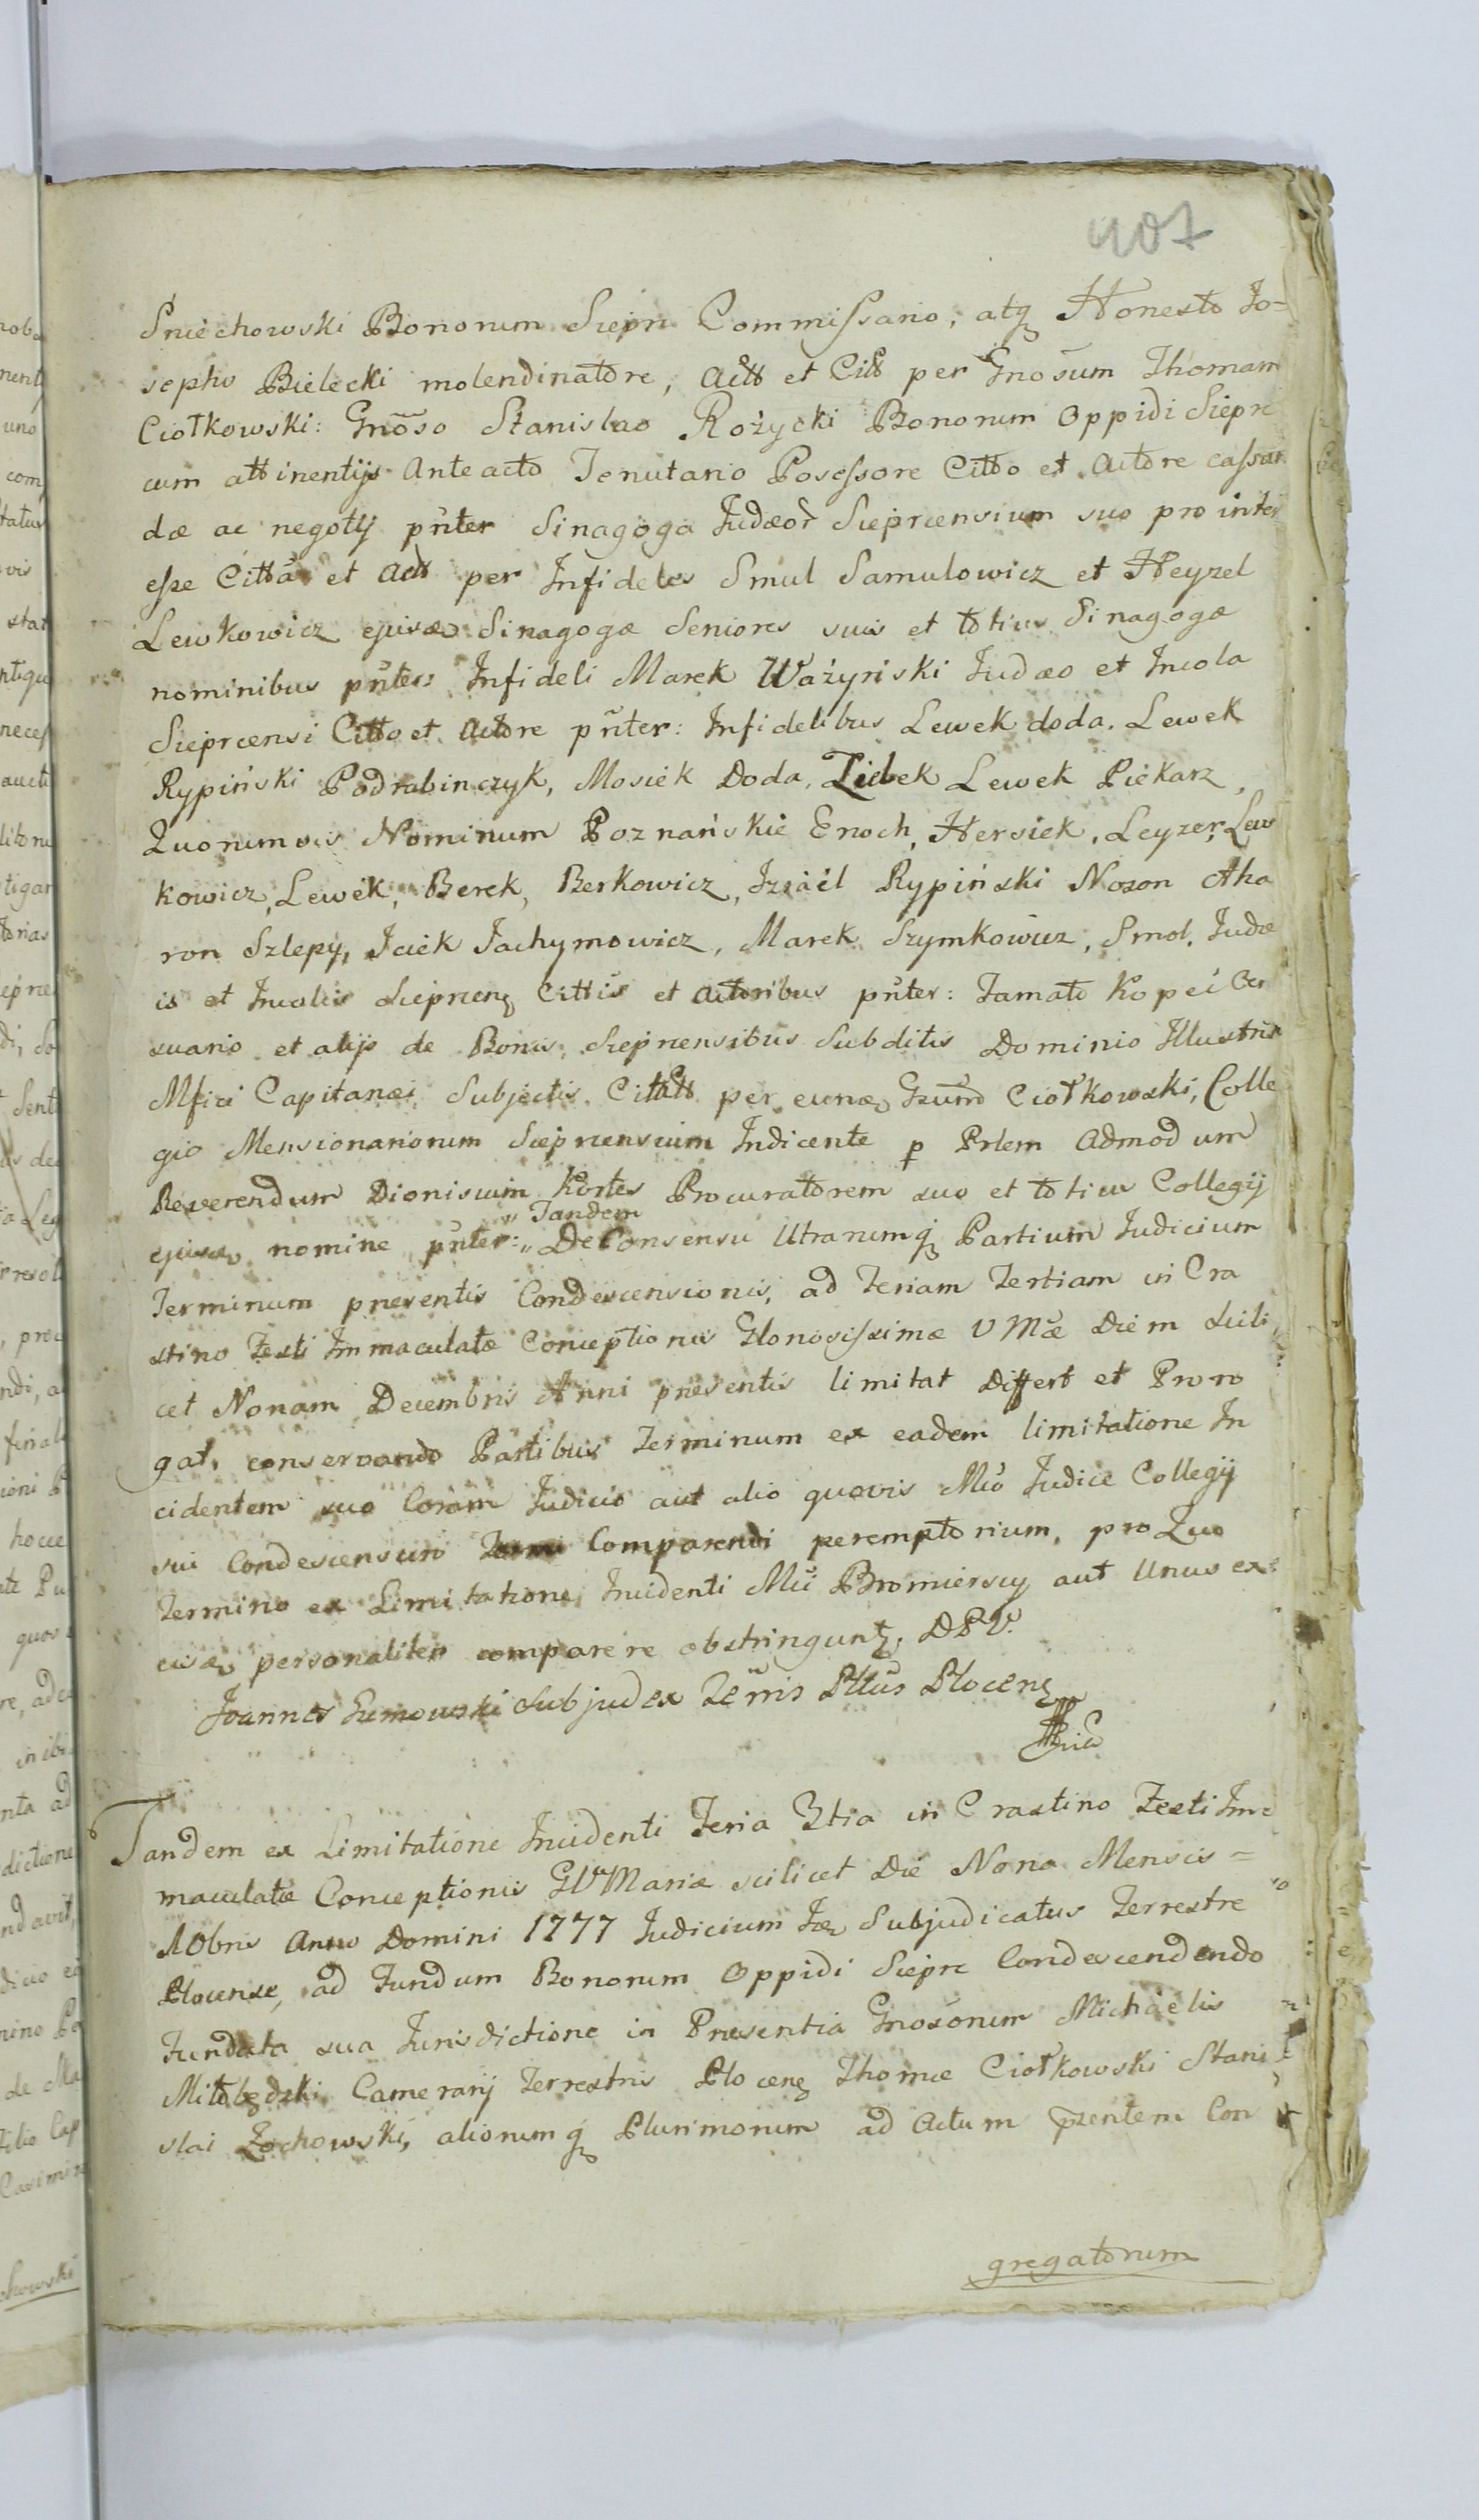 407
Sniechowski Bonorum Siepre Commissario, atq Honesto Jo-
sepho Bielecki molendinatore, Actt et Citt per Gnosum Thomam
Ciołkowski: Gnoso Stanislao Rożycki Bonorum Oppidi Siepre
cum attinentijs Anteacto Tenutario Posessore Citto et Actore cassan
dæ ac negotij pnter Sinagoga Judæor Sieprcensium suo pro inter
esse Citta et Actt per Infideles Smul Samulowicz et Heyzel
Lewkowicz ejusd Sinagogæ Seniores suis et totius Sinagogæ
nominibus pnter: Infideli Marek Ważyński Judæo et Incola
Sieprcensi Citto et Actore pnter: Infidelibus Lewek doda. Lewek
Rypiński Podrabinczyk, Mosiek Doda, Liebek Lewek Piekarz,
Quorumvis Nominum Poznańskie Enoch, Hersiek, Leyzer, Lew
kowicz, Lewek, Berek, Berkowicz, Izrael Rypiński Noson Aha
ron Szlepy, Jciek Jachymowicz, Marek Szymkowicz, Smol, Judæ
is et Incolis Sieprcens Cittis et Actoribus pnter: Famato Kopeć
suario et alijs de Bonis Sieprcensibus Subditis Dominio Illustris
Mfici Capitanei Subjectis Citt Actt per eund Gsum Ciołkowski, Colle
gio Mensionariorum Sieprcensium Indicente p Prlem Admodum
Reverendum Dionisium Kortes Procuratorem suo et totius Collegij
" Tandem
ejusd nomine pnter: " De Consensu Utrarumq Partium Judicium
Terminum presentis Condescensionis, ad Feriam Tertiam in Cra
stino Festi Immaculatæ Conceptionis Gloriosissimæ V Mæ Diem scili
cet Nonam Decembris Anni presentis limitat Differt et Proro
gat, conservando Partibus Terminum ex eadem limitatione In
cidentem suo Coram Judicio aut alio quovis Mio Judice Collegij
sui Condescensuro Comparendi peremptorium, pro Quo
Termino ex Limitatione Incidenti Mii Bromierscy aut Unus ex
eisd personaliter comparere obstringunt, DPV.
Joannes Gumowski Subjudex Terris Pttus Plocens
Tandem ex Limitatione Incidenti Feria 3tia in Crastino Festi Im=
maculatæ Conceptionis GV Mariæ scilicet Die Nona Mensis =
10bris Anno Domini 1777 Judicium Subjudicatus Terrestre
Plocense, ad Fundum Bonorum Oppidi Siepre Condescendendo
Fundata sua Jurisdictione in Presentia Gnosorum Michaelis
Miłobędzki Camerarij Terrestris Plocens Thomæ Ciołkowski Stani
slai Zochowski, aliorumq Plurimorum ad Actum pzentem Con
gregatorum